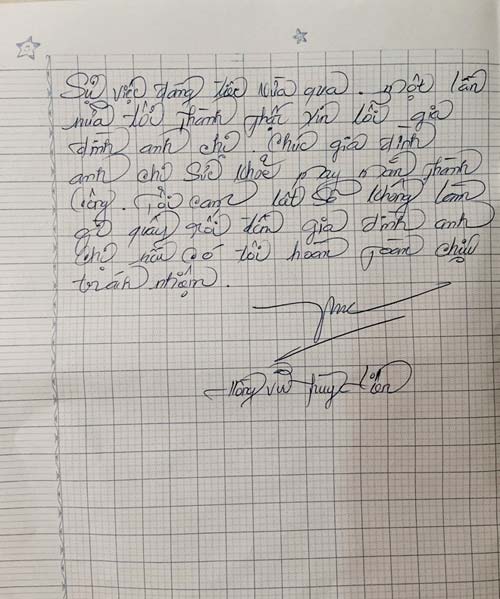 Sự việc đáng tiếc vừa qua. một lần
nữa tôi thành thật xin lỗi gia
đình anh chị. Chúc gia đình
anh chị sức khoẻ may mắn thành
công. Tôi cam kết sẽ không làm
gì quấy rối đến gia đình anh
chị nếu có tôi hoàn toàn chịu
trách nhiệm.
vũ thuỳ